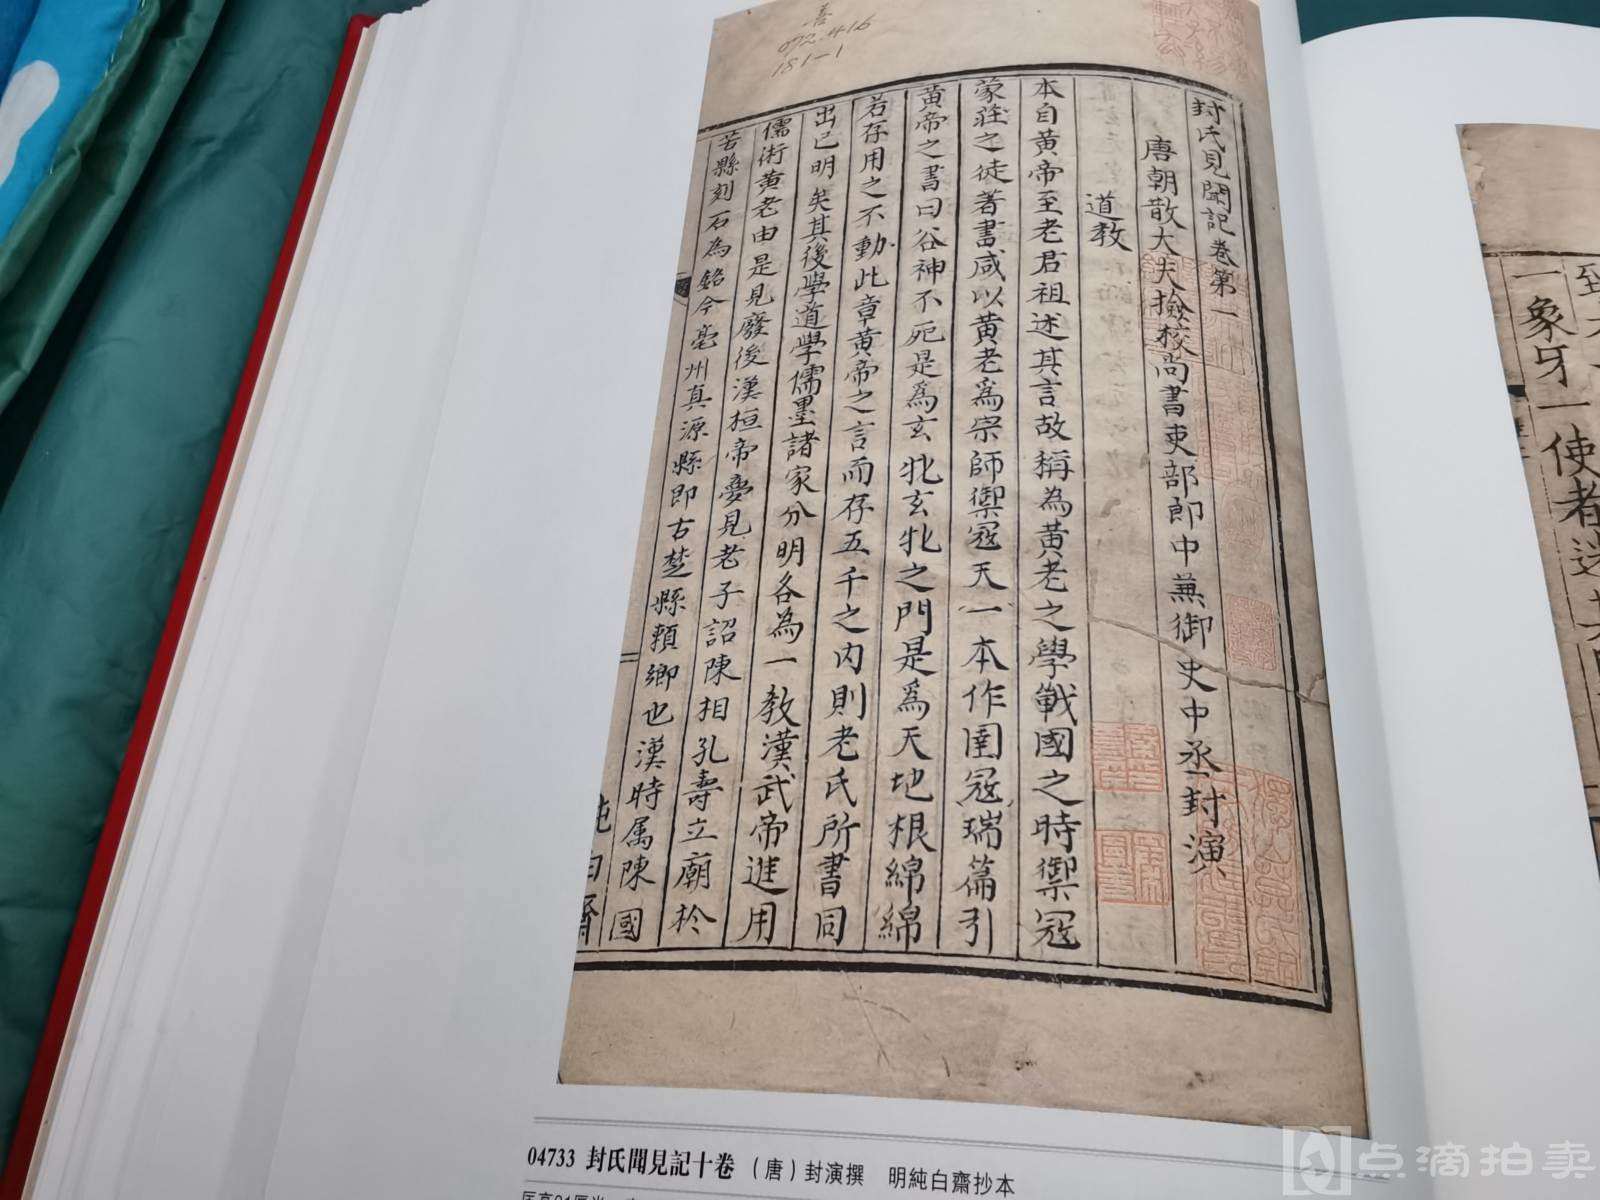 善
072.416
181-1
封氏見聞記卷第一
唐朝散大夫撿校尚書吏部郎中兼御史中丞封演
道教
本自黃帝至老君祖述其言故稱為黃老之學戰國之時禦冦
蒙莊之徒著書咸以黃老爲宗師禦冦天一本作圉冦瑞篇引
黃帝之書曰谷神不死是爲玄牝玄牝之門是爲天地根綿綿
若存用之不動此章黃帝之言而存五千之內則老氏所書同
出已明矣其後學道學儒墨諸家分明各為一教漢武帝進用
儒術黃老由是見廢後漢桓帝夢見老子詔陳相孔壽立廟於
苦縣刻石為銘今亳州真源縣即古楚縣賴鄉也漢時属陳國
純白齋
一象牙一使者送
04733 封氏聞見記十卷 （唐）封演撰 明純白齋抄本
点滴拍卖